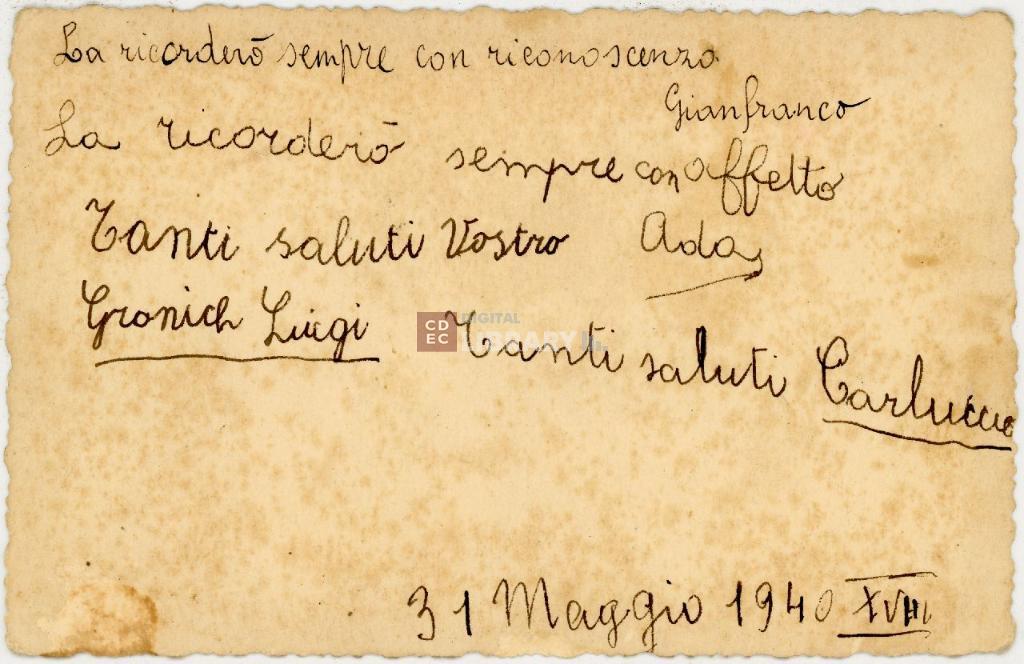 La ricorderò sempre con riconoscenza
Gianfranco
La ricorderò sempre con affetto
Ada
Tanti saluti Vostro
Gronich Luigi
Tanti saluti Carluccio
31 Maggio 1940 XVIII
CDEC DIGITAL LIBRARY